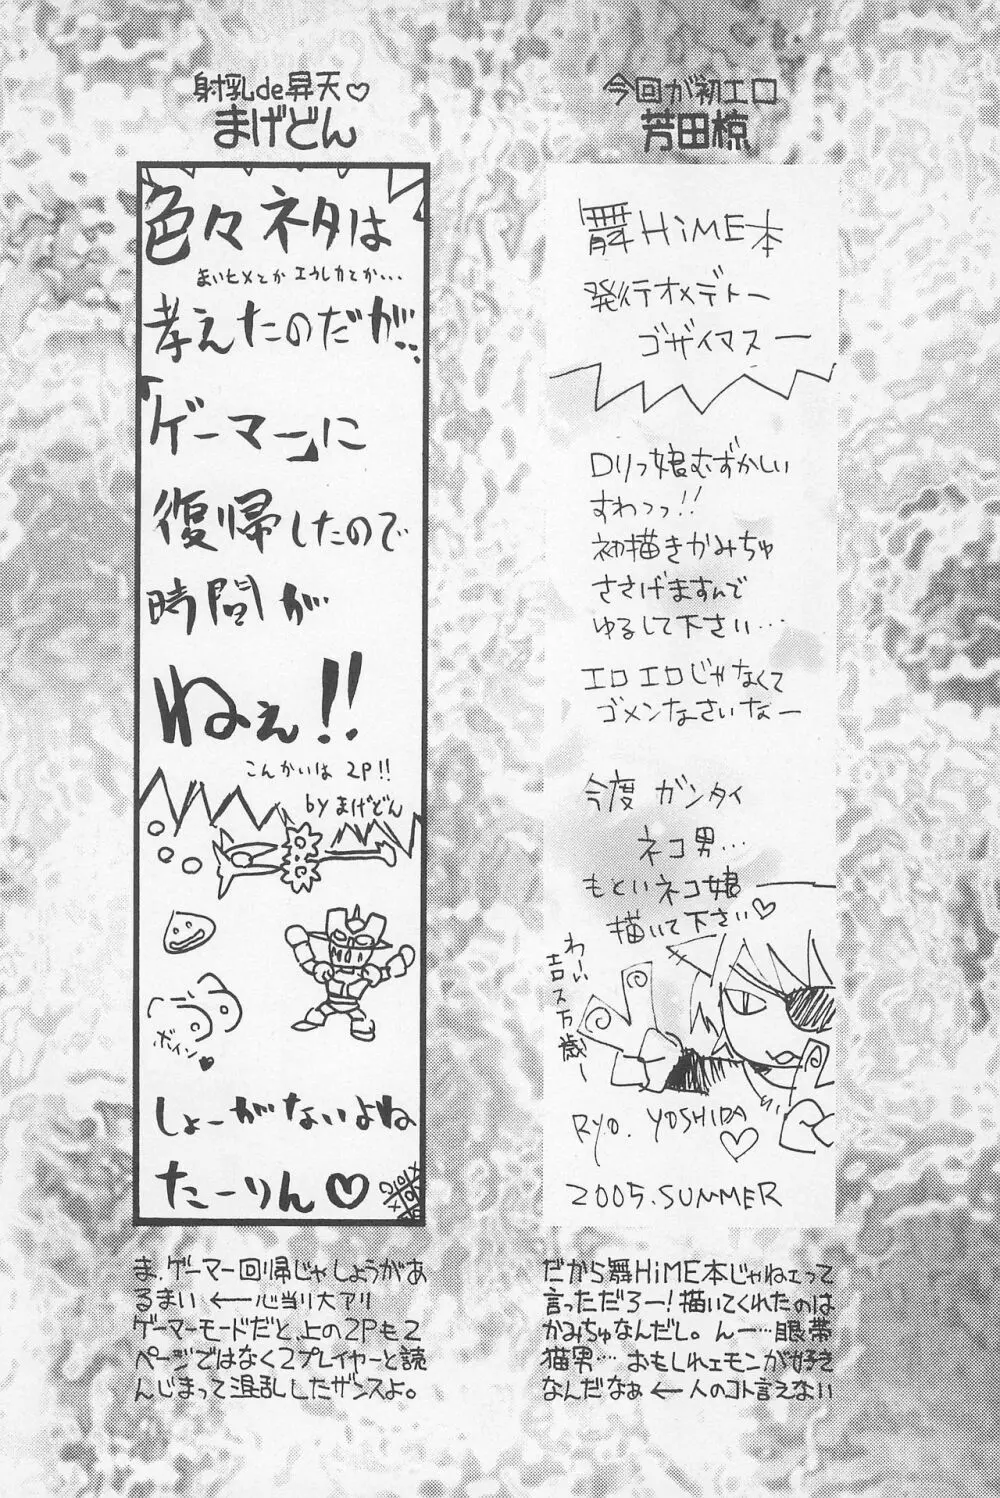 今回が初エロ
芳田椋
舞HiME本
発行オメデトー
ゴザイマスー
ロリっ娘むずかしい
すわっっ!!
初描きかみちゅ
ささげますんで
ゆるして下さい…
エロエロじゃなくて
ゴメンなさいなー
今度 ガンタイ
ネコ男…
もといネコ娘
描いて下さい♡
わーい
吉ス万歳ー
RYO. YOSHIDA
♡
2005.SUMMER
だから舞HiME本じゃねェって
言っただろー!描いてくれたのは
かみちゅなんだし。んー…眼帯
猫男… おもしれェモンが好き
なんだなぁ ←人のコト言えない
射乳de昇天♡
まげどん
色々ネタは
まいヒメとか エウレカとか...
考えたのだが…
「ゲーマー」に
復帰したので
時間が
ねぇ!!
こんかいは 2P!!
by まげどん
ボイン♥
しょーがないよね
たーりん♡
ま、ゲーマー回帰じゃしょうがあ
るまい ←心当り大アリ
ゲーマーモードだと、上の2Pも2
ページではなく2プレイヤーと読
んじまって混乱したザンスよ。